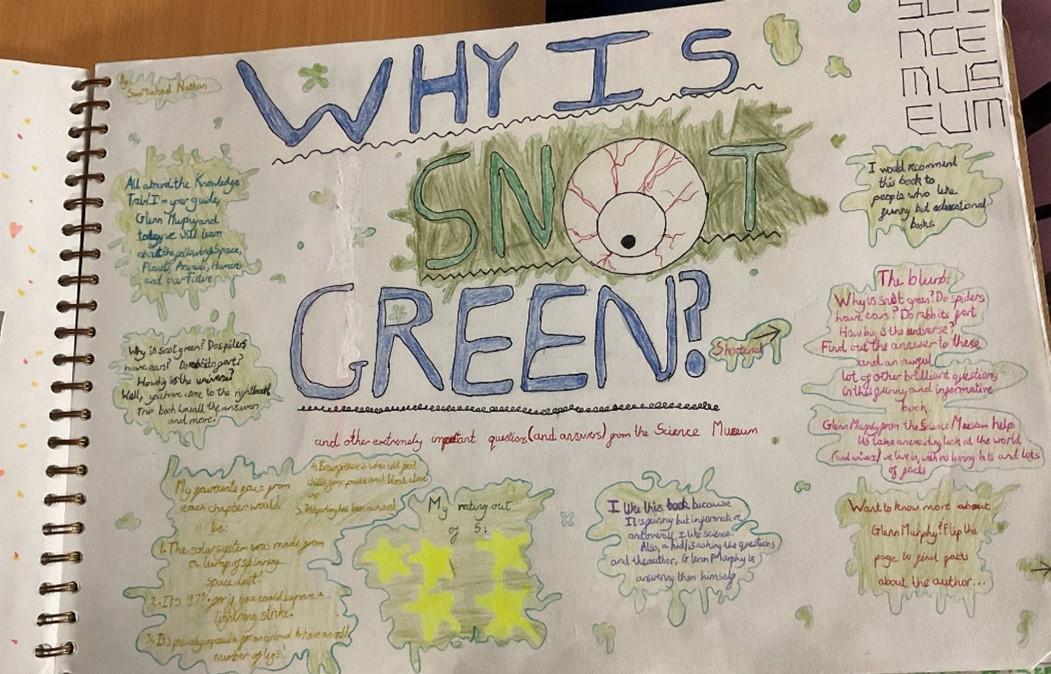 by
Nathan
SCI
NCE
MUS
EUM
WHY IS
SNOT
GREEN?
Shortened
and other extremely important questions (and answers) from the Science Museum
All aboard the Knowledge
Train! I'm your guide,
Glenn Muphy and
today we will learn
about the following: Space,
Planet, Animals, Humans
and our Future
Why is snot green? Do spiders
have ears? Do rabbits part?
How big is the universe?
Well, you have come to the right book
This book has all the answers
and more.
My favourite fact from
each chapter would
be:
1. The solar system was made from
a lump of spinning
space dust
2. It's 97% only you could survive a
lightning strike.
3. It's physically impossible for an animal to have an odd
number of legs!
4. Brainfreeze is when cold
up
My rating out
of 5:
I like this book because
It is funny but informative
and overall, I like science.
Also, a kid is asking the questions
and the author, Glenn Murphy is
answering them himself
I would recommend
this book to
people who like
funny but educational
books.
The blurb:
Why is snot green? Do spiders
have ears? Do rabbits part
How big is the universe?
Find out the answer to these
and an awful
lot of other brilliant questions
in this funny and informative
book.
Glenn Murphy from the Science Museum helps
us take an exciting look at the world
(and universe) we live in, with no boring bits and lots
of facts
Want to know more about
Glenn Murphy? Flip the
page to find facts
about the author...